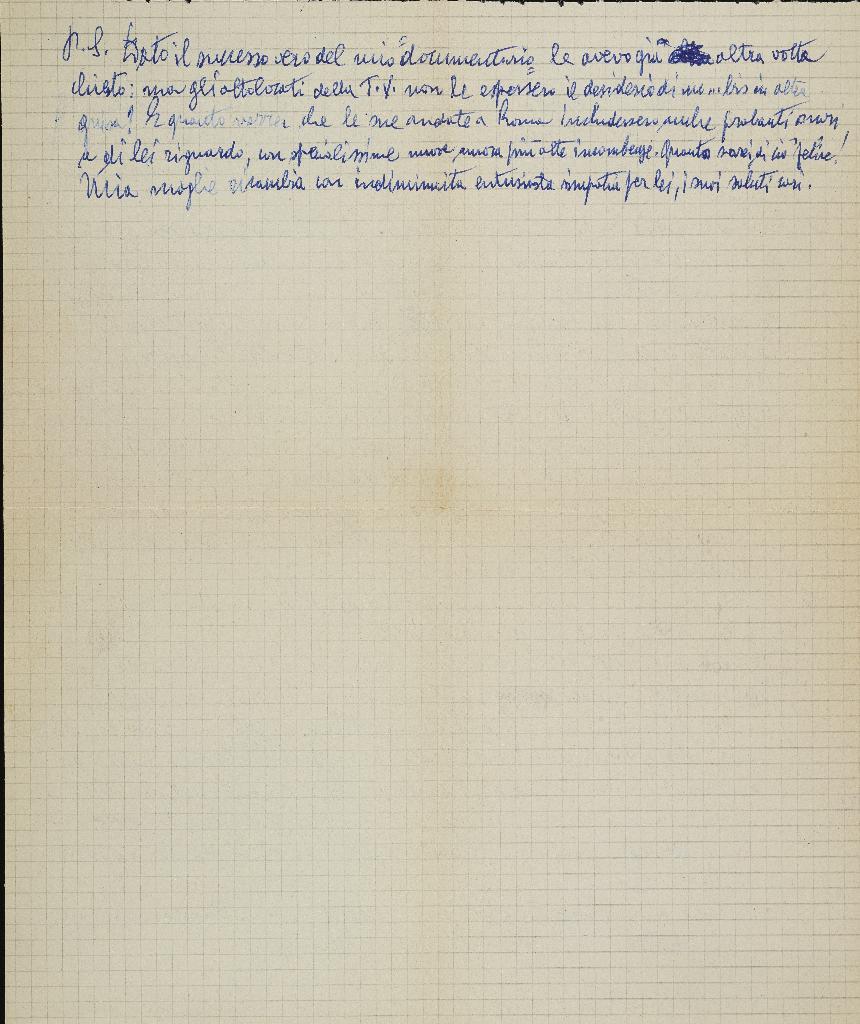 P.S. Dato il successo vero del mio "documentario" le avevo già altra volta
chiesto: ma gli altolocati della T.V. non le espressero il desiderio di un... bis in altra
guisa? E quanto vorrei che le sue andate a Roma includessero anche probanti onori,
a di lei riguardo, con specialissime nuove, ancora più alte incombenze. Quanto sarei di ciò felice!
Mia moglie ricambia con indiminuita entusiasta simpatia per lei, i suoi saluti cari.